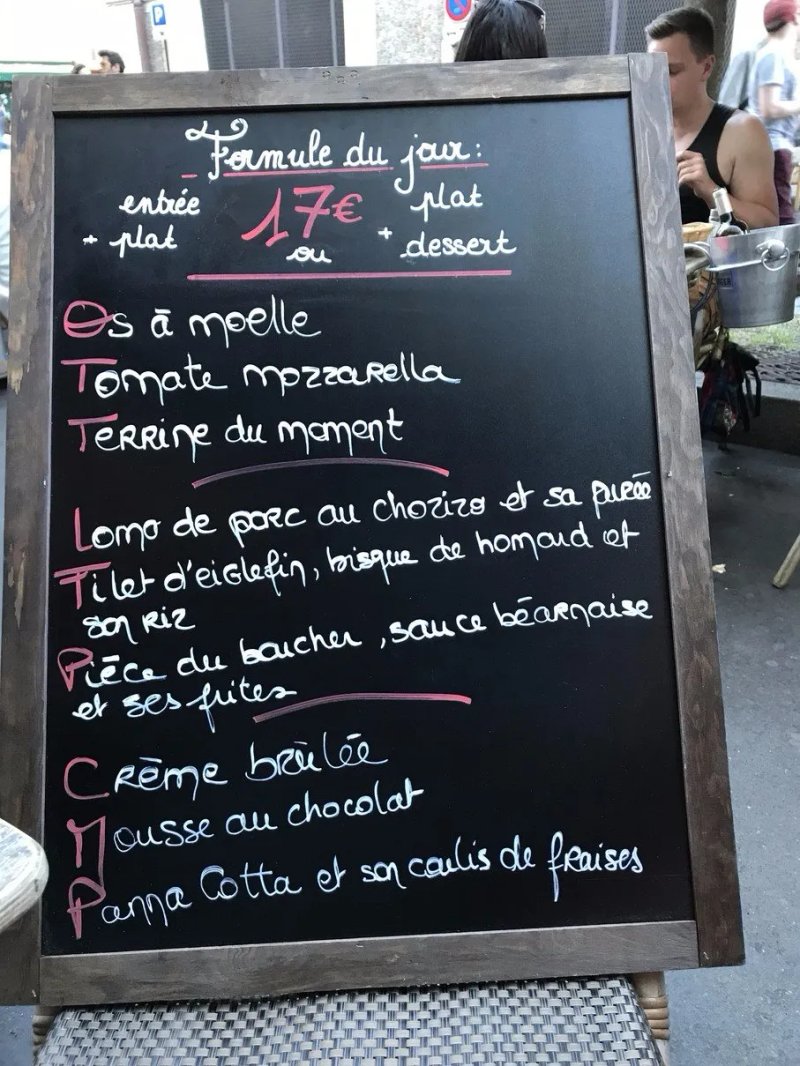 Formule du jour:
entrée + plat
17€
ou
plat + dessert
Os à moelle
Tomate mozzarella
Terrine du moment
Lomo de porc au chorizo et sa purée
Filet d'eiglefin, bisque de homard et
son riz
Pièce du boucher, sauce béarnaise
et ses frites
Crème brûlée
Mousse au chocolat
Panna Cotta et son coulis de fraises
P